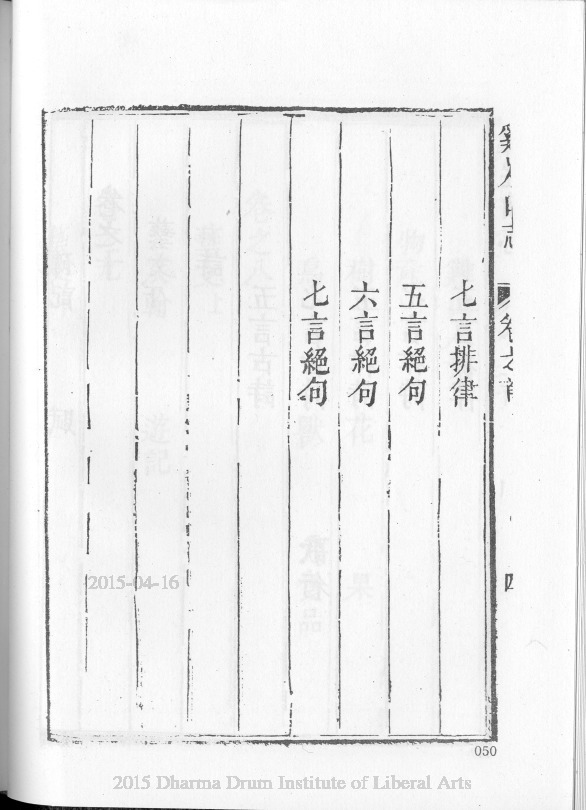 卷之首
四
七言排律
五言絕句
六言絕句
七言絕句
2015-04-16
050
2015 Dharma Drum Institute of Liberal Arts